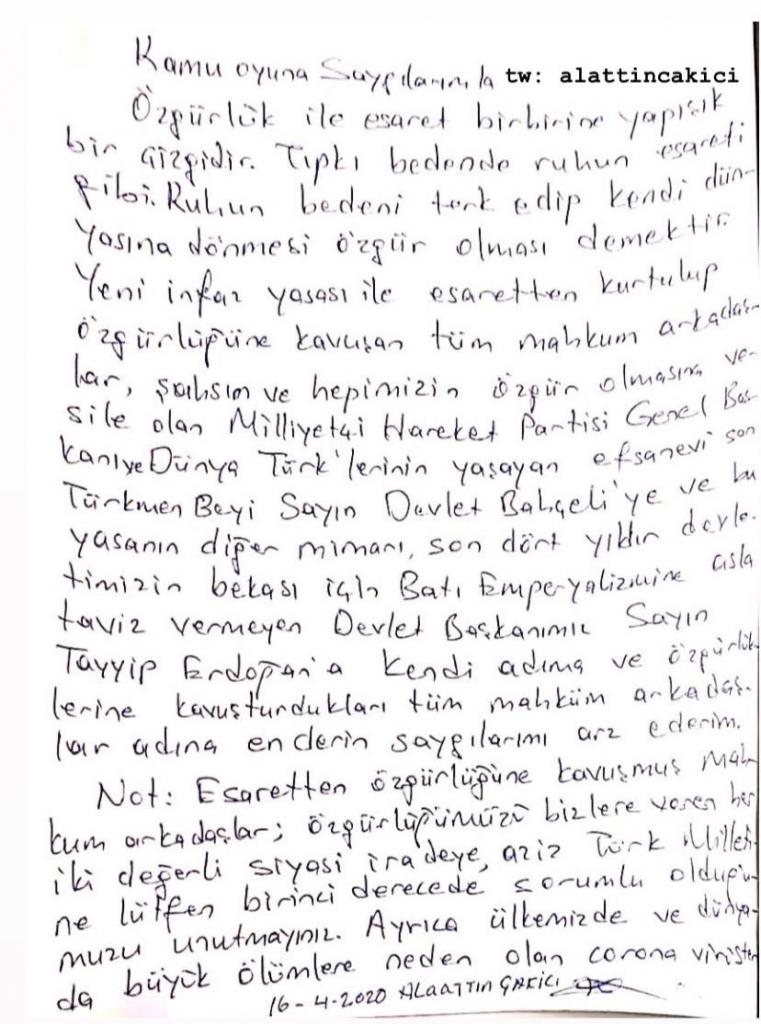 Kamu oyuna Saygılarımla tw: alattincakici
Özgürlük ile esaret birbirine yapışık
bir çizgidir. Tıpkı bedende ruhun esareti
gibi. Ruhun bedeni terk edip kendi dün-
yasına dönmesi özgür olması demektir.
Yeni infaz yasası ile esaretten kurtulup
özgürlüğüne kavuşan tüm mahkum arkadaş-
lar, şahsım ve hepimizin özgür olmasına ve-
sile olan Milliyetçi Hareket Partisi Genel Baş-
kanı ve Dünya Türk'lerinin yaşayan efsanevi son
Türkmen Beyi Sayın Devlet Bahçeli'ye ve bu
yasanın diğer mimarı, son dört yıldır devle-
timizin bekası için Batı Emperyalizmine asla
taviz vermeyen Devlet Başkanımız Sayın
Tayyip Erdoğan'a kendi adıma ve özgürlük-
lerine kavuşturdukları tüm mahküm arkadaş-
lar adına enderin saygılarımı arz ederim.
Not: Esaretten özgürlüğüne kavuşmuş mah-
kum arkadaşlar; özgürlüğümüzü bizlere veren her
iki değerli siyasi iradeye, aziz Türk Milleti-
ne lütfen birinci derecede sorumlu olduğu-
muzu unutmayınız. Ayrıca ülkemizde ve dünya-
da büyük ölümlere neden olan corona virüsten
16-4-2020 ALAATTİN ÇAKICI